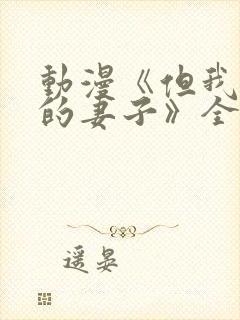 動漫《但我
的妻子》全
遥晏